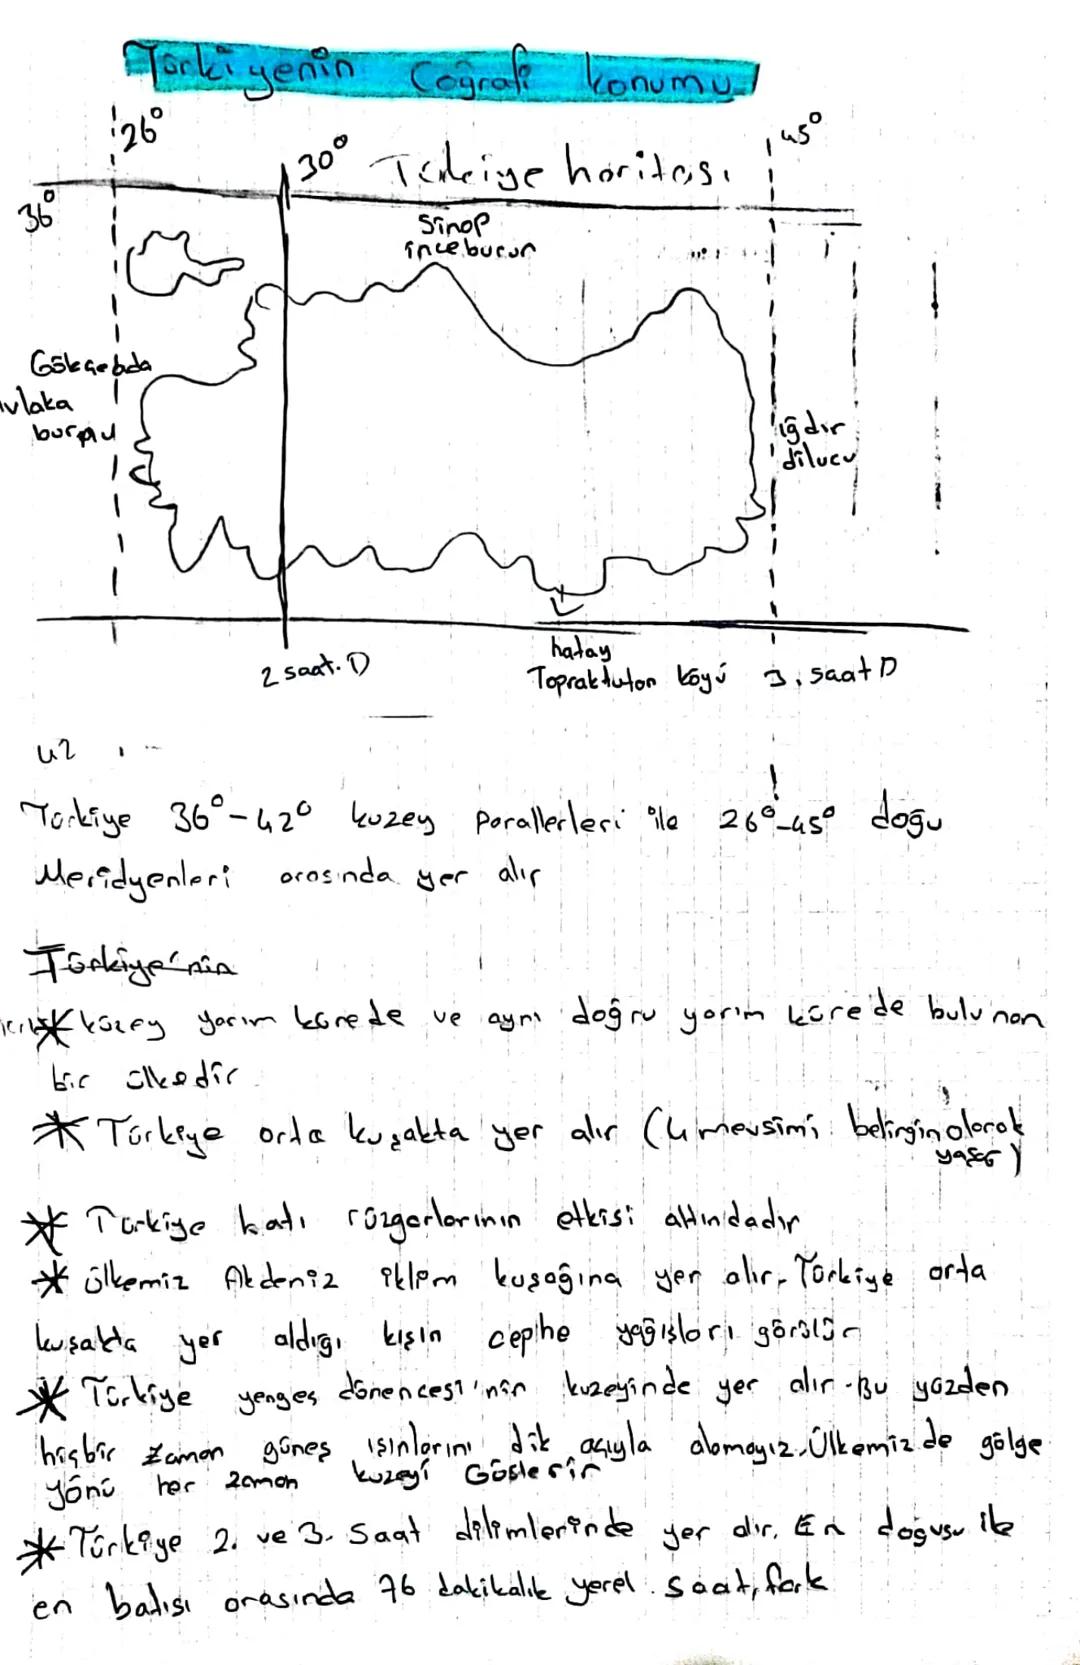 Türkiyenin Coğrafi konumu
26°
30° Türkiye haritası 45°
36°
Sinop
inceburun
Gökçeada
avlaka
burnu
ığdır
dilucu
2 saat. D
hatay
Topraktutan köyü 3. saat D
42
Türkiye 36°-42° kuzey paralleri ile 26°-45° doğu
Meridyenleri arasında yer alır
Türkiye'nin
* kuzey yarım kürede ve aynı doğru yarım kürede bulunan
bir ülkedir
* Türkiye orta kuşakta yer alır (4 mevsimi belirgin olarak
yaşar)
* Türkiye batı rüzgarlarının etkisi altındadır
* ülkemiz Akdeniz iklim kuşağına yer alır. Türkiye orta
kuşakta yer aldığı kışın cephe yağışları görülür
* Türkiye yengeç dönencesi'nin kuzeyinde yer alır. Bu yüzden
hiçbir zaman güneş ışınlarını dik açıyla alamayız. Ülkemizde gölge
yönü her zaman kuzeyi Gösterir
* Türkiye 2. ve 3. Saat dilimlerinde yer alır. En doğusu ile
en batısı arasında 76 dakikalık yerel saat, fark